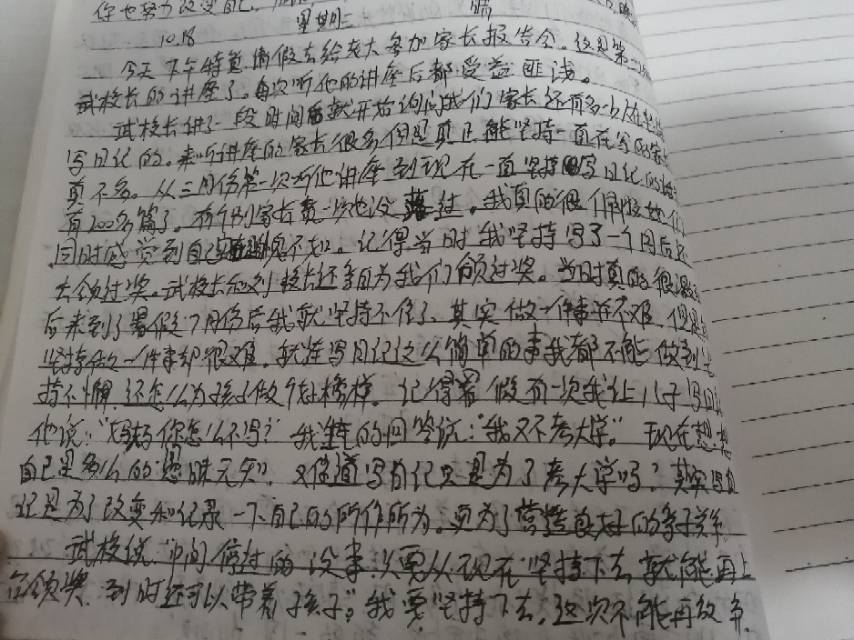 你也努力改变自己
10.18 星期三 晴
今天下午特意请假去给老大参加家长报告会。这是第二次
武校长的讲座了。每次听他的讲座后都受益匪浅。
武校长讲了一段时间后就开始询问我们家长还有多少在坚持
写日记的。来听讲座的家长很多但是真正能坚持一直在写的家长
真不多。从三月份第一次听他讲座到现在一直坚持写日记的
有200多篇了。有个别家长一次也没落过。我真的很佩服她们
同时感觉到自己不如。记得当时我坚持写了一个月后还
去领过奖。武校长和刘校长还亲自为我们颁过奖。当时真的很激动
后来到了暑假7月份后我就坚持不住了。其实做一件事并不难，但是
坚持做一件事却很难。就连写日记这么简单的事我都不能做到坚
持不懈，还怎么为孩子做个好榜样。记得暑假有一次我让儿子写日记
他说："妈妈你怎么不写？"我的回答说："我又不考大学"。现在想想
自己是多么的愚昧无知。难道写日记只是为了考大学吗？其实写日
记是为了改变和记录一下自己的所作所为。更为了营造良好的亲子关系
武校说"中间停过的没事，只要从现在坚持下去就能再上
台领奖，到时还可以带着孩子"。我要坚持下去，这次不能再放弃